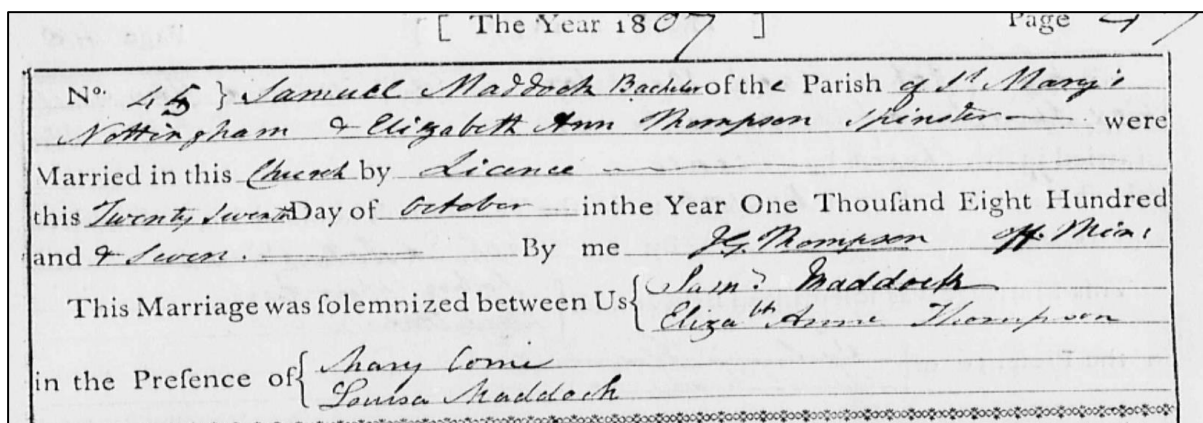 [ The Year 1807 ] Page
No. 45 } Samuel Maddock Bachelor of the Parish of St. Mary's
Nottingham & Elizabeth Ann Thompson Spinster were
Married in this Church by Licence
this Twenty Seventh Day of October in the Year One Thouſand Eight Hundred
and & Seven. By me Thompson Off. Minr
This Marriage was ſolemnized between Us { Saml. Maddock
Elizabth Anne Thompson
in the Preſence of { Mary
Louisa Maddock